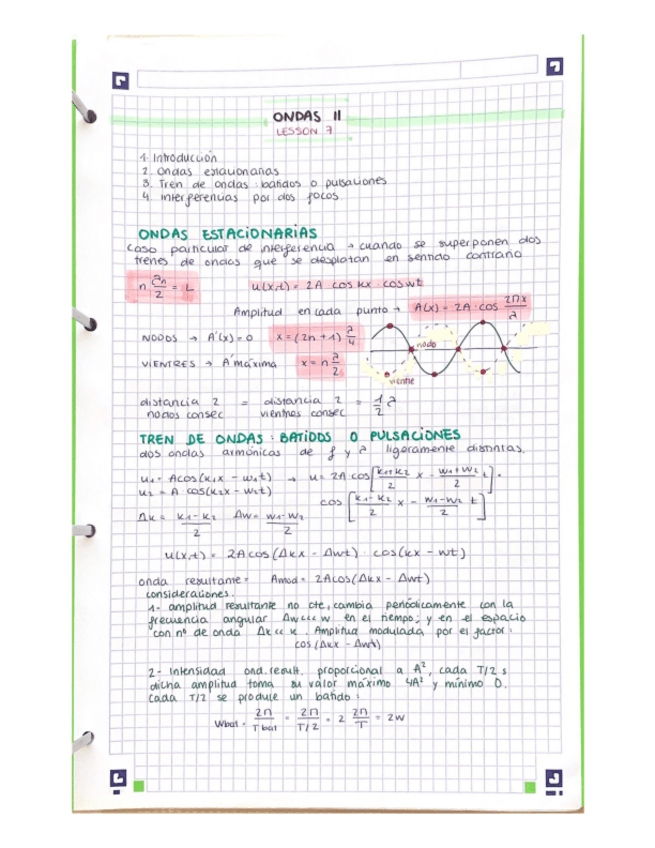 ONDAS II
LESSON 7
1. Introducción
2. Ondas estacionarias
3. Tren de ondas: batidos o pulsaciones
4. Interferencias por dos focos
ONDAS ESTACIONARIAS
Caso particular de interferencia → cuando se superponen dos
trenes de ondas que se desplazan en sentido contrario
n λn/2 = L
u(x,t) = 2A cos kx · cos wt
Amplitud en cada punto → A(x) = 2A · cos 2πx/λ
NODOS → A'(x) = 0 x = (2n + 1) λ/4
nodo
VIENTRES → A' máxima x = n λ/2
vientre
distancia 2 nodos consec = distancia 2 vientres consec = 1/2 λ
TREN DE ONDAS: BATIDOS O PULSACIONES
dos ondas armónicas de f y λ ligeramente distintas.
u1 = A cos(k1x - w1t) → u = 2A cos [k1+k2/2 x - w1+w2/2 t] ·
u2 = A cos(k2x - w2t)
cos [k1-k2/2 x - w1-w2/2 t]
Δk = k1-k2/2 Δw = w1-w2/2
u(x,t) = 2A cos(Δkx - Δwt) · cos(kx - wt)
onda resultante = Amod = 2A cos(Δkx - Δwt)
consideraciones.
1- amplitud resultante no cte, cambia periódicamente con la
frecuencia angular Δw<<<w en el tiempo; y en el espacio
con nº de onda Δk<<k. Amplitud modulada por el factor:
cos(Δkx - Δwt)
2- Intensidad ond. result. proporcional a A², cada T/2 s
dicha amplitud toma su valor máximo 4A² y mínimo 0.
cada T/2 se produce un batido:
Wbat = 2π/Tbat = 2π/T/2 = 2 2π/T = 2w